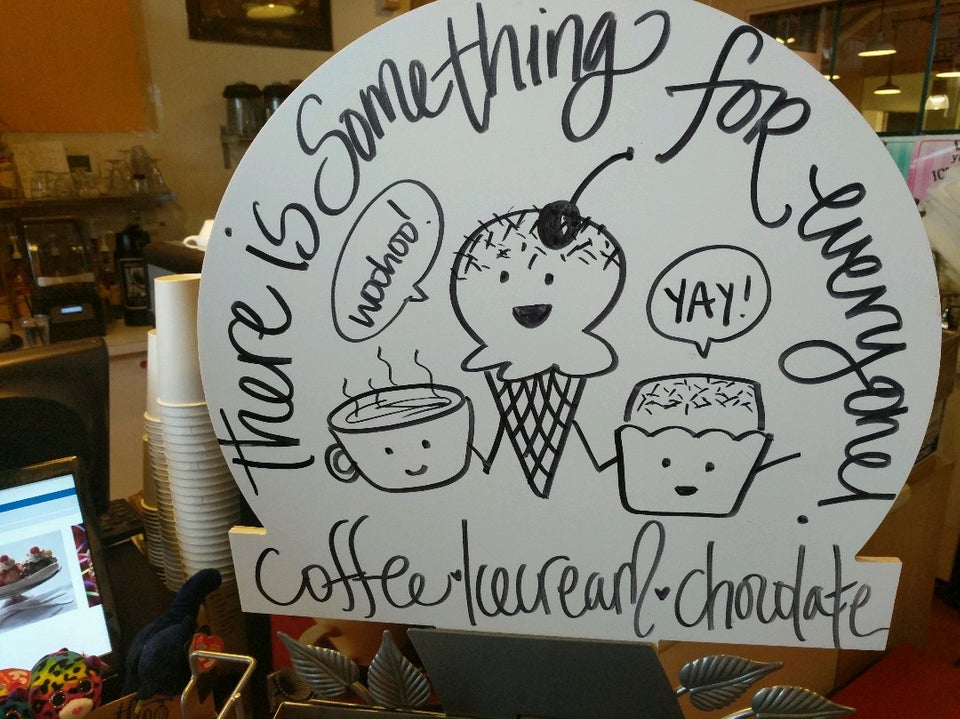 there is Something for everyone!
woohoo!
YAY!
coffee • Icecream • chocolate